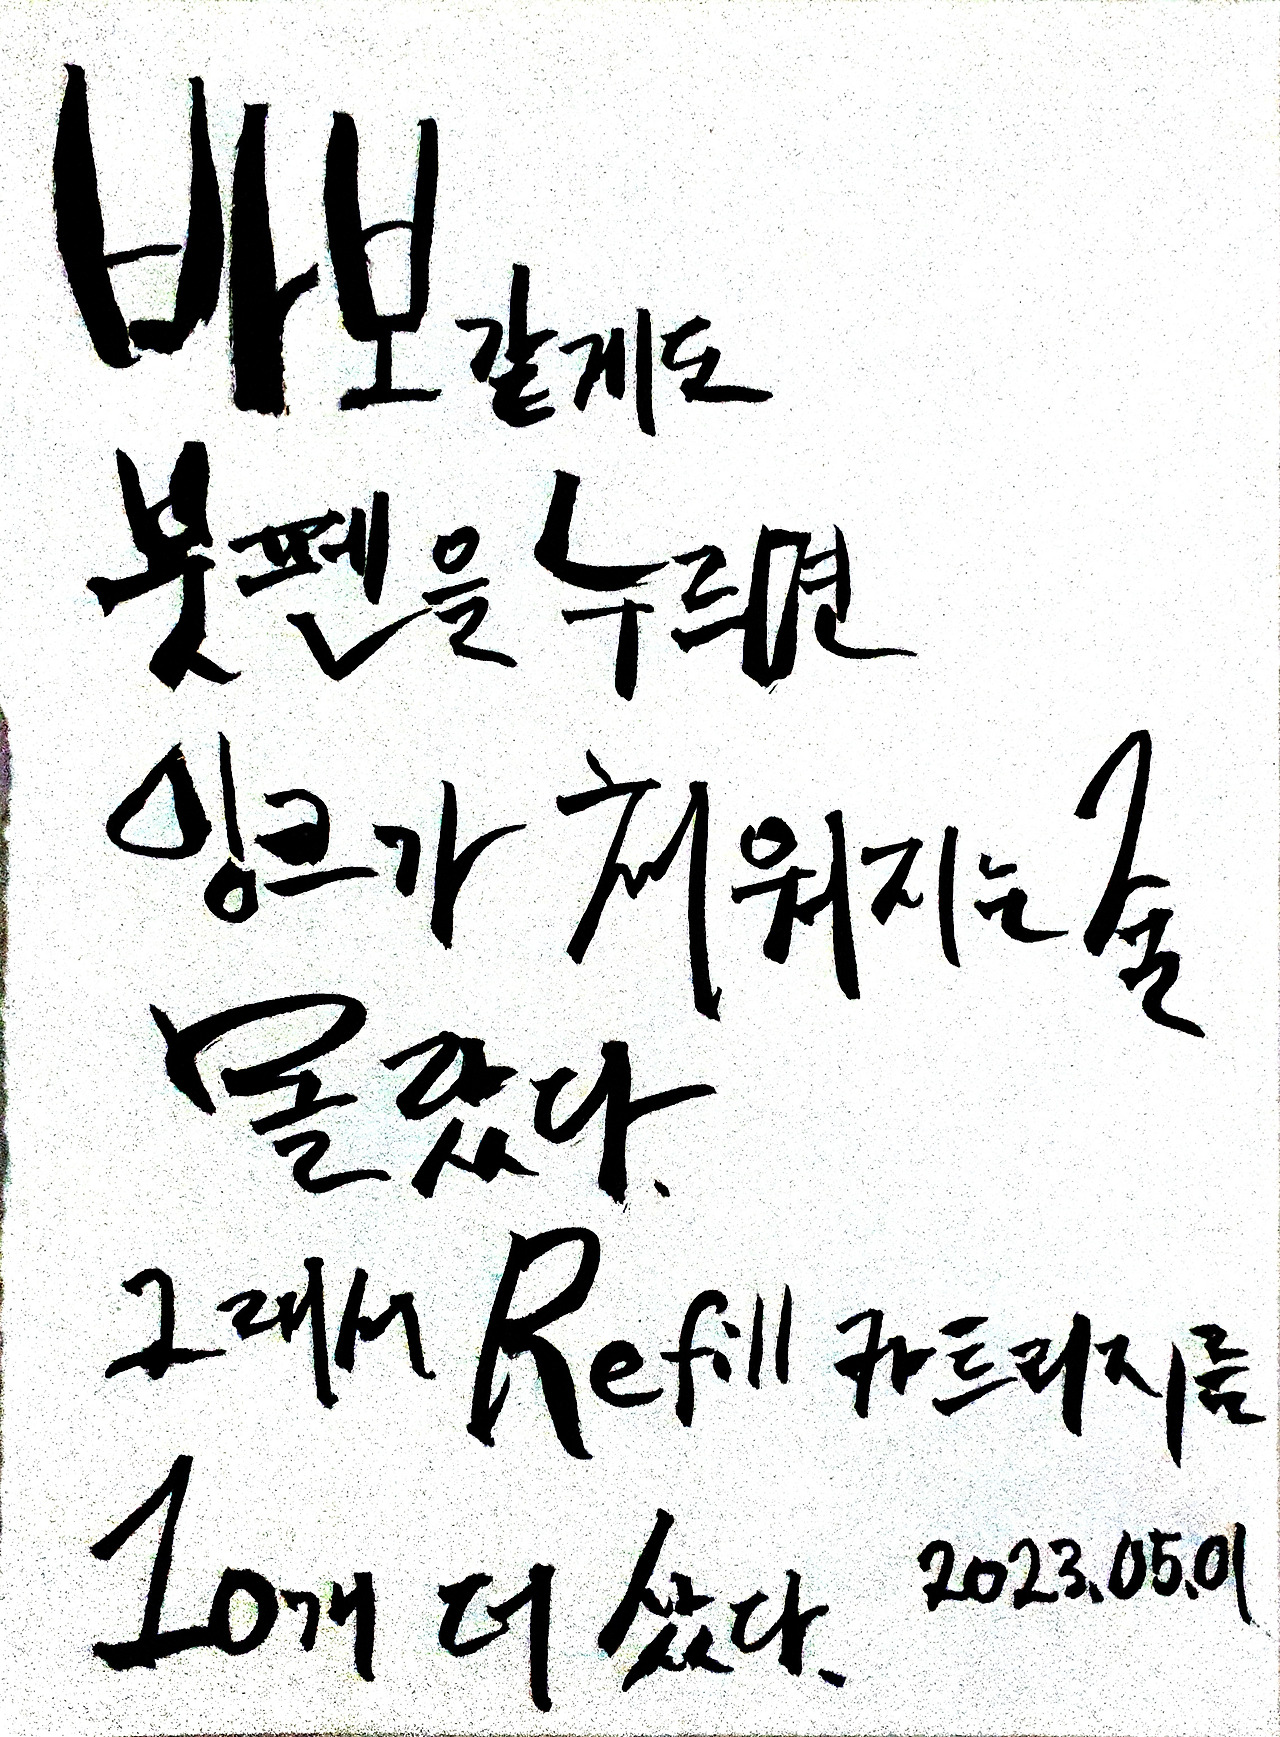 바보같게도
붓펜을 누르면
잉크가 채워지는 줄
몰랐다.
그래서 Refill 카트리지를
10개 더 샀다. 2023.05.01